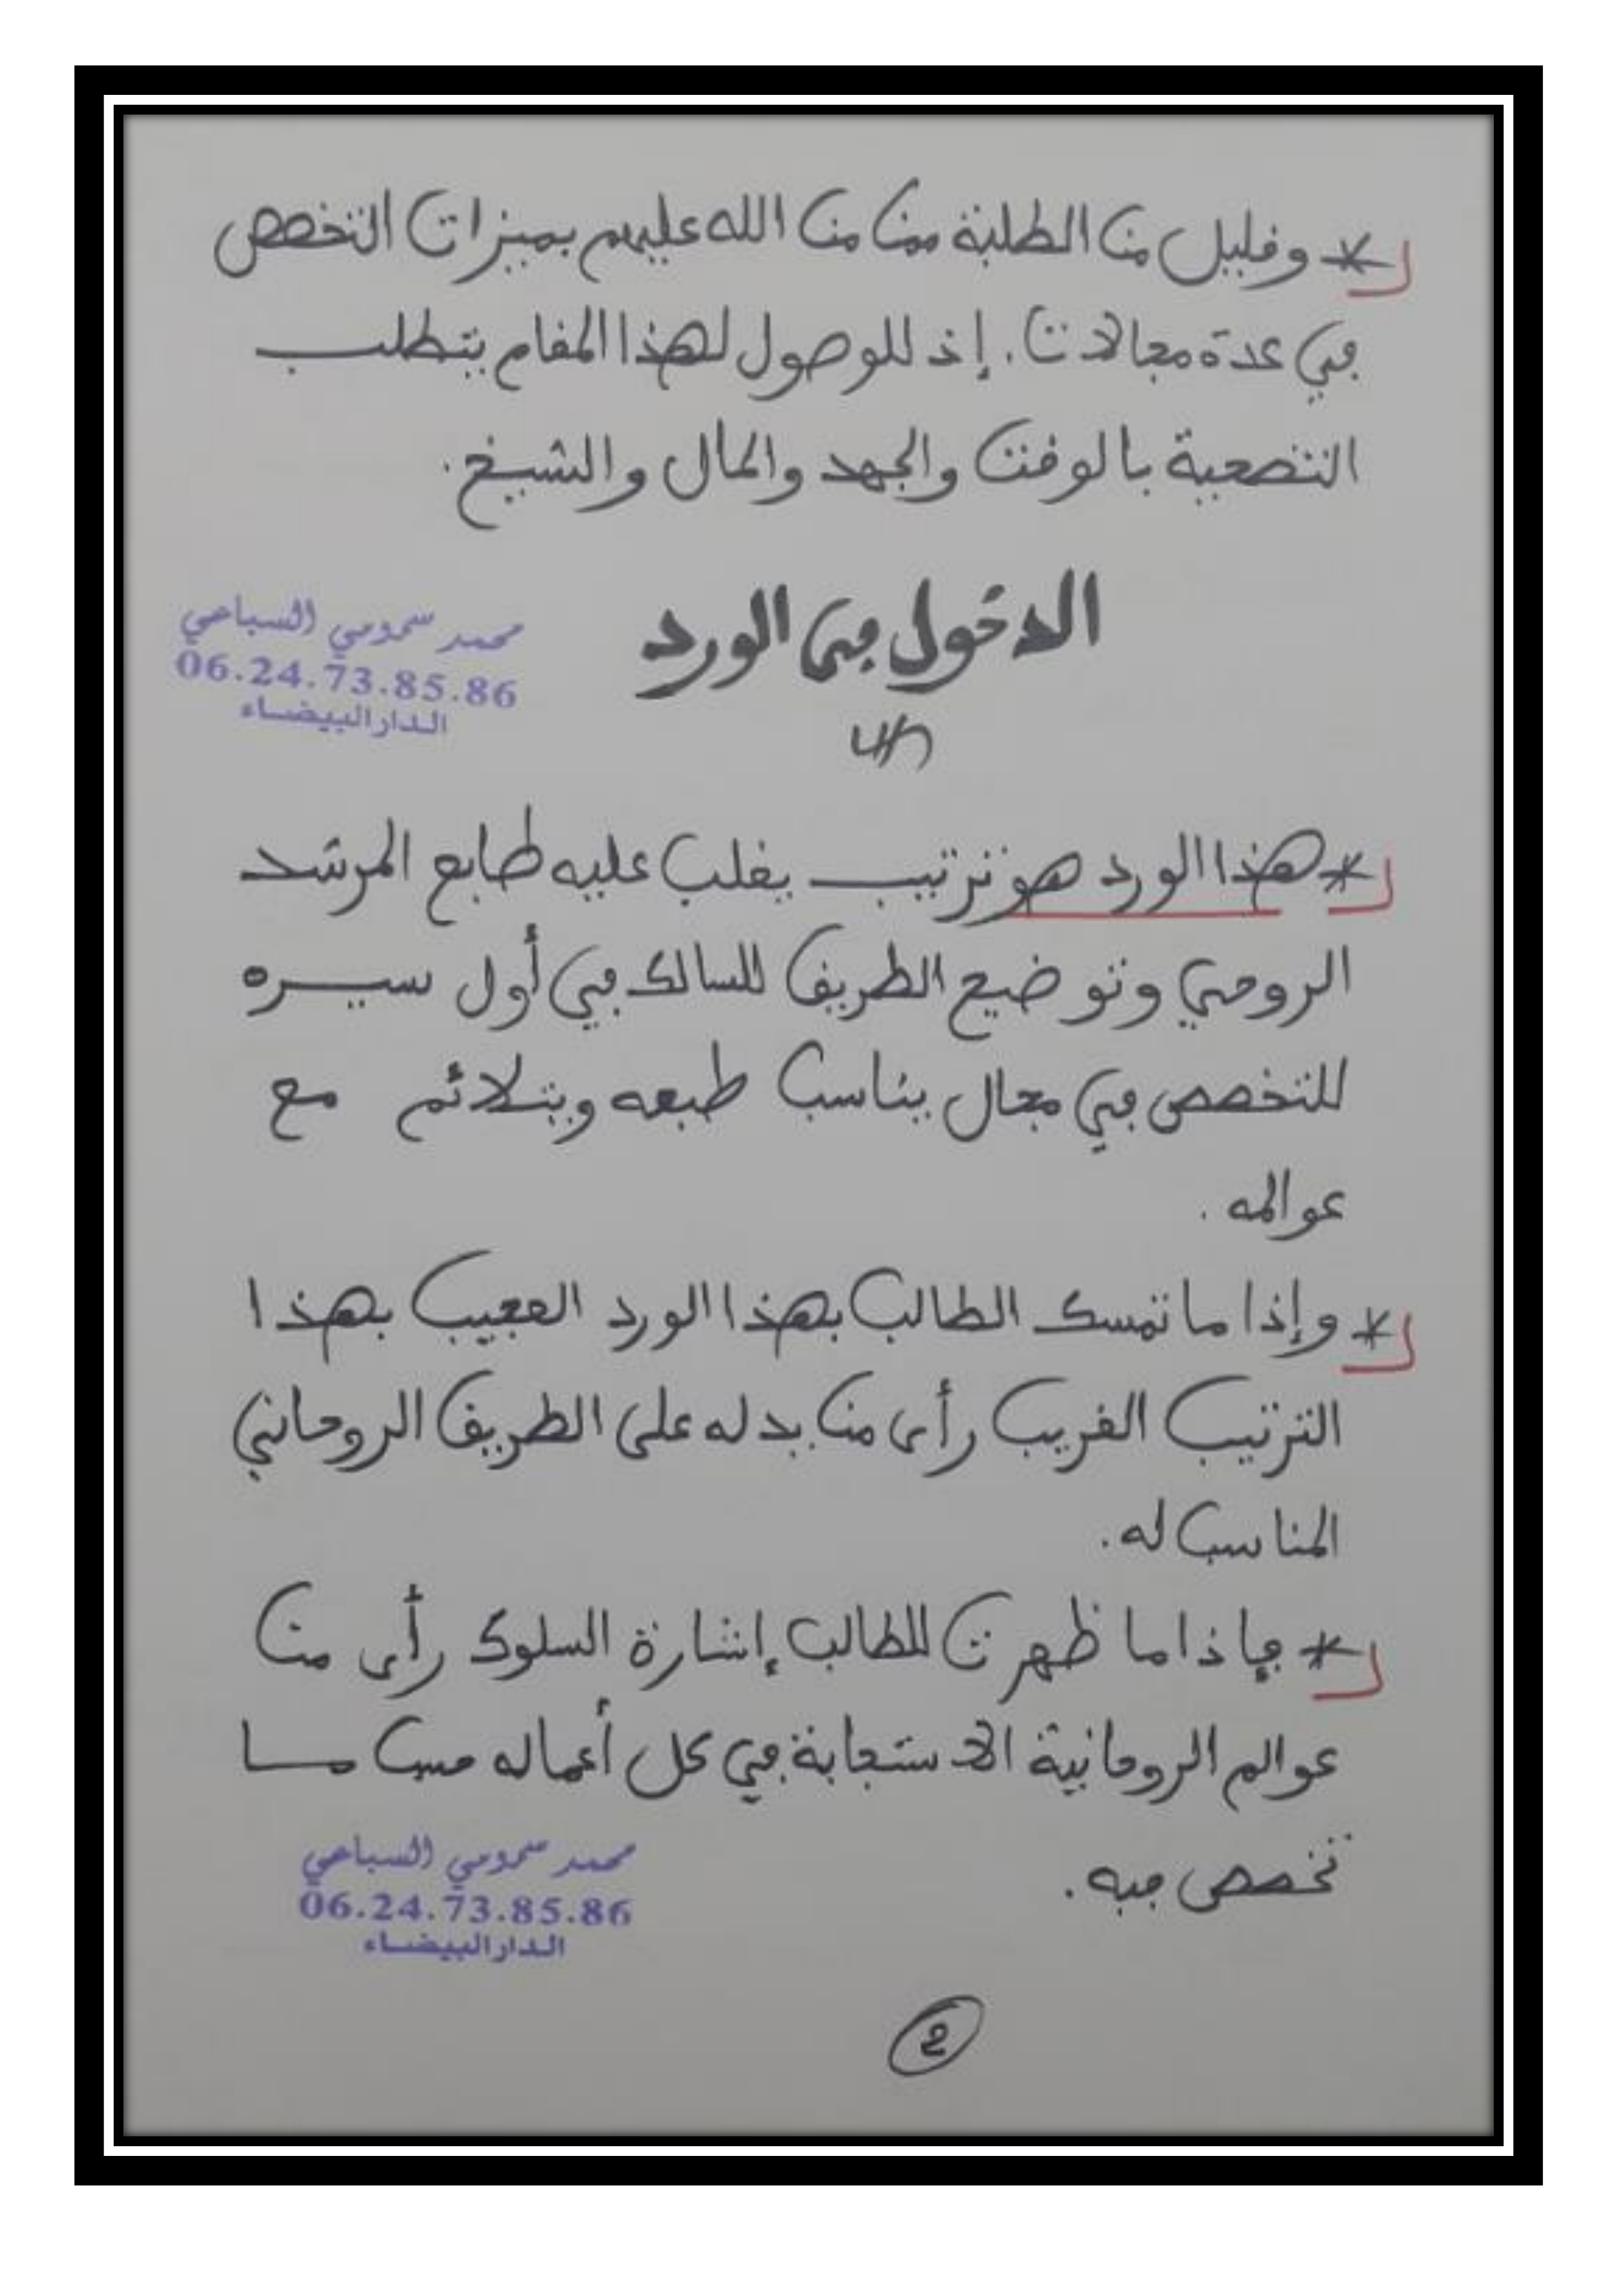 * وقليل من الطلبة ممن من الله عليهم بميزات التخصص
في عدة مجالات. إذ للوصول لهذا المقام يتطلب
التضحية بالوقت والجهد والمال والشيخ.
الدخول في الورد
محمد سمومي السباعي
06.24.73.85.86
الدار البيضاء
* هذا الورد هو ترتيب يغلب عليه طابع المرشد
الروحي وتوضيح الطريق للسالك في أول سيره
للتخصص في مجال يناسب طبعه ويتلائم مع
عوالمه.
* وإذا ما تمسك الطالب بهذا الورد العجيب بهذا
الترتيب الغريب رأى من يدله على الطريق الروحاني
المناسب له.
* فإذا ما ظهرت للطالب إشارة السلوك رأى من
عوالم الروحانية الاستجابة في كل أعماله حسب ما
تخصص فيه.
محمد سمومي السباعي
06.24.73.85.86
الدار البيضاء
2